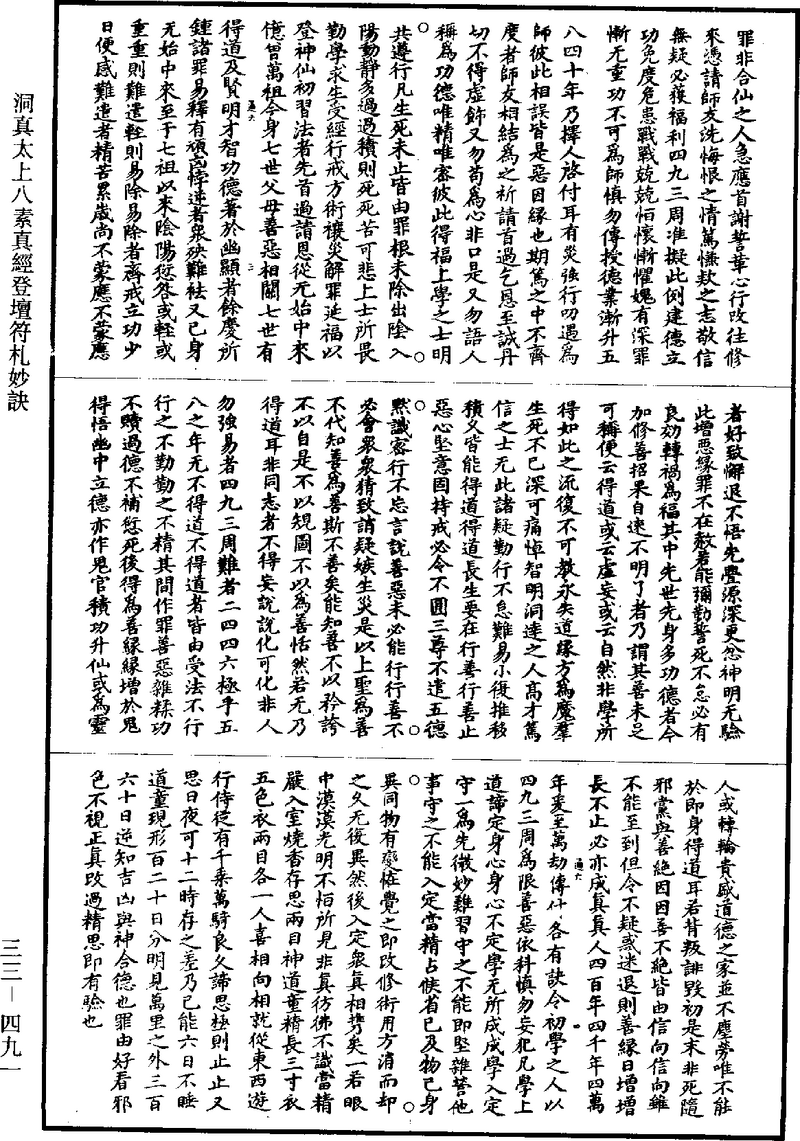 洞真太上八素真經登壇符札妙訣
三三－四九一
罪非合仙之人急應首謝誓華心行改往修
來憑請師友洗悔恨之情篤慊款之志敬信
無疑必獲福利四九三周准擬此例建德立
功免度危患戰戰兢兢怕懷慚懼媿有深罪
慚无重功不可爲師慎勿傳授德業漸升五
八四十年乃擇人啓付耳有災強行切遇爲
師彼此相誤皆是惡因緣也期篤之中不齊
度者師友相結爲之祈請首過乞恩至誠丹
切不得虛飾又勿苟爲心非口是又勿語人
稱爲功德唯精唯密彼此得福上學之士明
共遵行凡生死未止皆由罪根未除出陰入
陽動靜多過過積則死死苦可悲上士所畏
勤學求生受經行戒方術禳災解罪延福以
登神仙初習法者先首過請恩從无始中來
億曾萬祖今身七世父母善惡相關七世有
得道及賢明才智功德著於幽顯者餘慶所
鍾諸罪易釋有頑凶悖逆者衆殃難袪又已身
无始中來至于七祖以來陰陽愆咎或輕或
重重則難遣輕則易除易除者齋戒立功少
日便感難遣者精苦累歲尚不蒙應不蒙應
者好致懈退不悟先亹源深更忿神明无驗
此增惡緣罪不在赦若能彌勤誓死不怠必有
良効轉禍爲福其中先世先身多功德者今
加修善招果自速不明了者乃謂其善未足
可稱便云得道或云虛妄或云自然非學所
得如此之流復不可教永失道緣方爲魔羣
生死不已深可痛悼智明洞達之人高才篤
信之士无此諸疑勤行不怠難易小復推移
積久皆能得道得道長生要在行善行善止
惡心堅意固持戒必令不圓三尊不遣五德
默識密行不忘言說善惡未必能行行善不
必會衆衆猜致誚疑嫉生災是以上聖爲善
不代知善爲善斯不善矣能知善不以矜誇
不以自是不以規圖不以爲善恬然若无乃
得道耳非同志者不得妄說說化可化非人
勿強易者四九三周難者二四四六極乎五
八之年无不得道不得道者皆由受法不行
行之不勤勤之不精其間作罪善惡雜糅功
不贖過德不補愆死後得爲善緣緣增於鬼
得悟幽中立德亦作鬼官積功升仙或爲靈
人或轉輪貴盛道德之家並不塵勞唯不能
於即身得道耳若背叛誹毀初是末非死隨
邪黨與善絶因因善不絶皆由信向信向雖
不能至到但令不疑惑迷退則善緣日增增
長不止必亦成真真人四百年四千年四萬
年爰至萬劫傳付各有訣令初學之人以
四九三周爲限善惡依科慎勿妄犯凡學上
道諦定身心身心不定學无所成成學入定
守一爲先微妙難習守之不能即堅雜誓他
事守之不能入定當精占候省已及物已身
異同物有變恠覺之即改修術用方消而却
之久无復異然後入定衆真相携矣一若眼
中漠漠光明不怕所見非真彷彿不識當精
嚴入室燒香存思兩目神道童精長三寸衣
五色衣兩目各一人喜相向相就從東西遊
行侍從有千乘萬騎良久諦思極則止止又
思日夜可十二時存之差乃已能六日不睡
道童現形百二十日分明見萬里之外三百
六十日逆知吉凶與神合德也罪由好看邪
色不視正真改過精思即有驗也